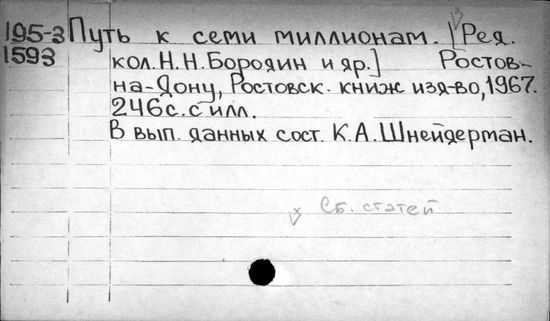 195-3 Путь к семи миллионам. [Ред.
1593 кол. Н.Н. Бородин и др.] Ростов-
на-Дону, Ростовск. книж изд-во, 1967.
246с. с илл.
В вып. данных сост. К.А. Шнейдерман.
Сб. статей